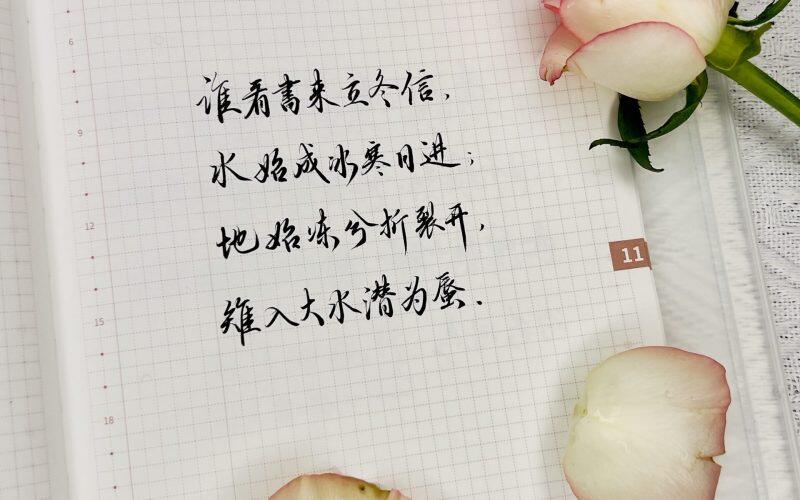 谁看書来立冬信，
水始成冰寒日进；
地始冻兮折裂开，
雉入大水潜为蜃．
6
9
12
15
18
11